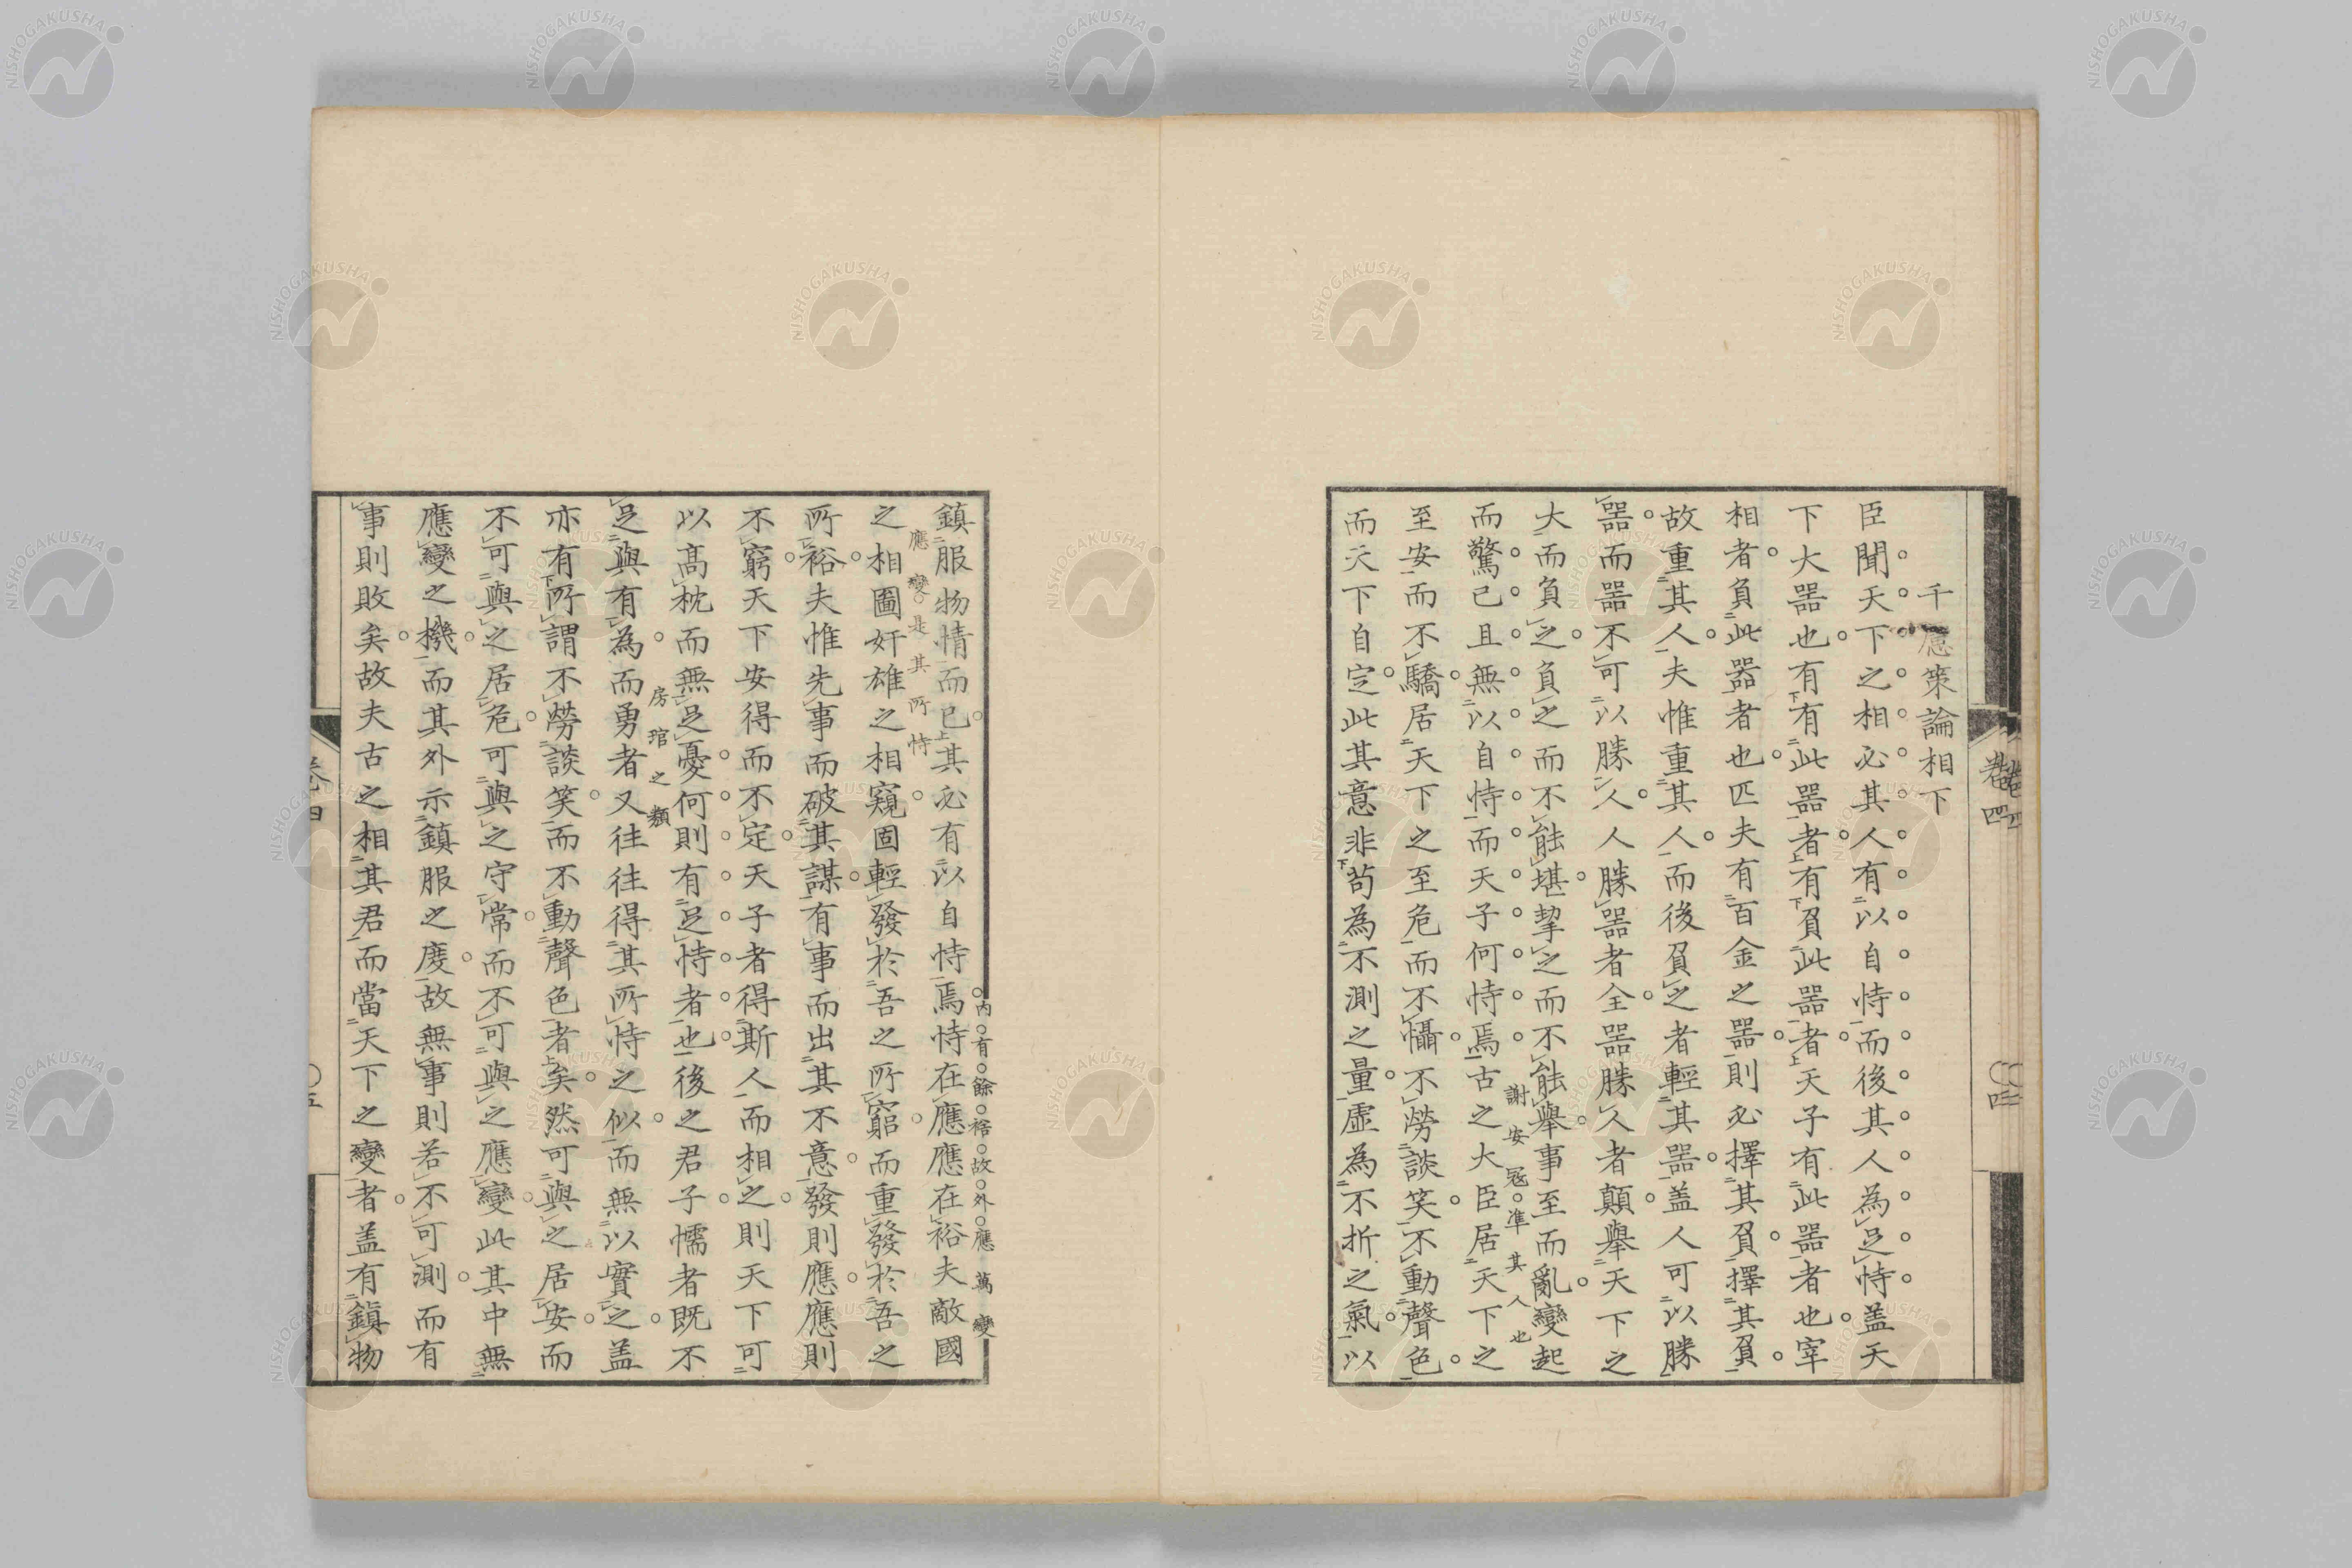 千慮策論相下
臣聞天下之相必其人有以自恃而後其人為足恃盖天
下大器也有有此器者有負此器者天子有此器者也宰
相者負此器者也匹夫有百金之器則必擇其負擇其負
故重其人夫惟重其人而後負之者輕其器盖人可以勝
器而器不可以勝人人勝器者全器勝人者顛舉天下之
大而負之負之而不能堪挈之而不能舉事至而亂變起
而驚已且無以自恃而天子何恃焉古之大臣居天下之
謝安冦準其人也
至安而不驕居天下之至危而不懾不勞談笑不動聲色
而天下自定此其意非苟為不測之量虛為不折之氣以
卷四
四
鎮服物情而已其必有以自恃焉恃在應應在裕夫敵國
内有餘裕故外應萬變
應變是其所恃
之相圖奸雄之相窺固輕發於吾之所窮而重發於吾之
所裕夫惟先事而破其謀有事而出其不意發則應應則
不窮天下安得而不定天子者得斯人而相之則天下可
以高枕而無足憂何則有足恃者也後之君子懦者既不
足與有為而勇者又往往得其所恃之似而無以實之盖
房琯之類
亦有所謂不勞談笑而不動聲色者矣然可與之居安而
不可與之居危可與之守常而不可與之應變此其中無
應變之機而其外示鎮服之度故無事則若不可測而有
事則敗矣故夫古之相其君而當天下之變者盖有鎮物
卷四
五
NISHOGAKUSHA